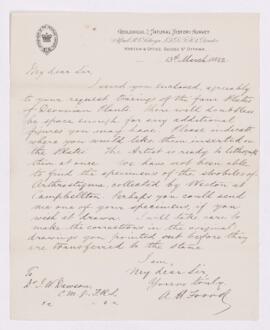 GEOLOGICAL & NATURAL HISTORY SURVEY
Alfred R.C. Selwyn, LL.D., F.R.S., Director
MUSEUM & OFFICE, SUSSEX ST OTTAWA.
13th March 1882
My dear Sir,
I send you enclosed, agreeably
to your request tracings of the four Plates
of Devonian Plants. There will doubtless
be space enough for any additional
figures you may have. Please indicate
where you would like them inserted in
the Plate. The Artist is ready to lithograph
them at once. We have not been able
to find the specimens of the strobiles of
Arthrostigma, collected by Weston at
Campbellton. Perhaps you could send
me one of your specimens, if you
wish it drawn. I will take care to
make the corrections in the original
drawings you pointed out before they
are transferred to the stone.
I am
My dear Sir,
Yours truly
A. H. Foord
To
Dr J. W. Dawson
C. M. G. F.R.S.